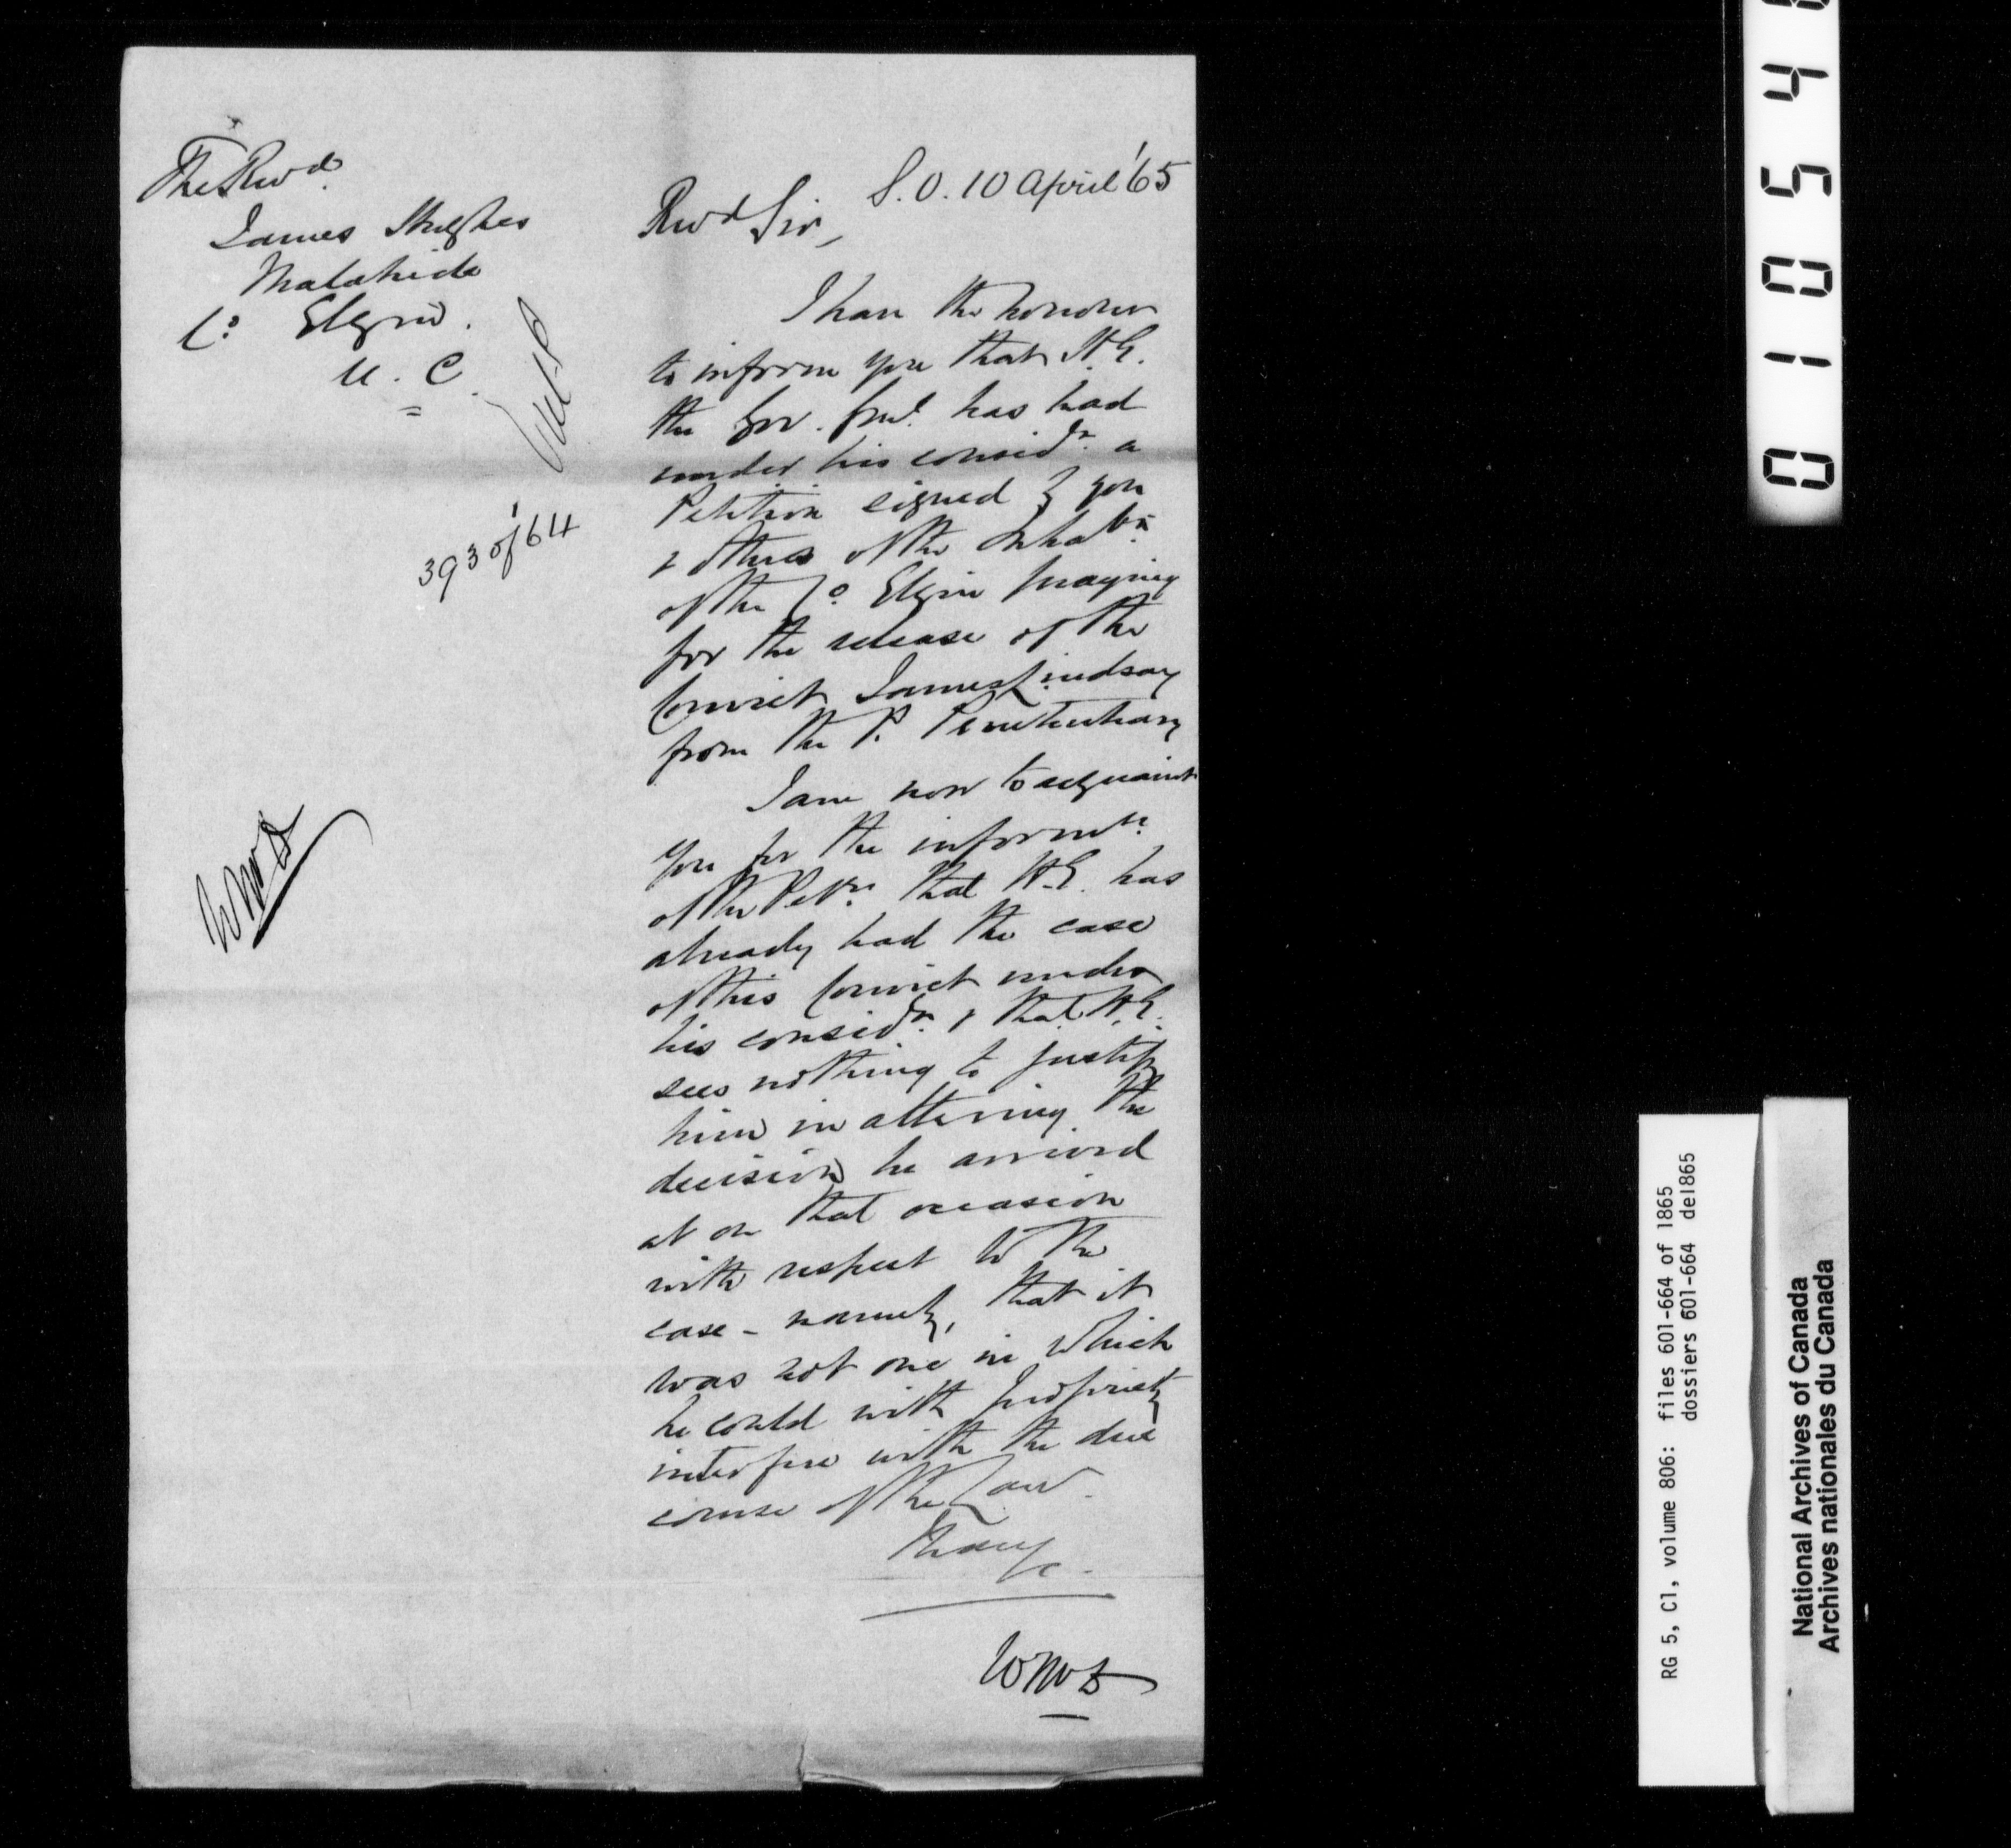 The Revd.
James Hughes
Malahide
Co. Elgin.
U. C.
393 of '64
S.O. 10 April '65
Revd Sir,
I have the honour
to inform you that H.E.
the Gov. Genl. has had
under his considn. a
Petition signed by you
& others of the Inhabts.
of the Co. Elgin praying
for the release of the
Convict James Lindsay
from the P. Penitentiary
I am now to acquaint
you for the informn.
of the Petrs. that H.E. has
already had the case
of this Convict under
his considn. & that H.E.
sees nothing to justify
him in altering the
decision he arrived
at on that occasion
with respect to the
case - namely, that it
was not one in which
he could with propriety
interfere with the due
course of the Law.
I have
&c.
WMD
0 1 0 5 4
RG 5, C1, volume 806: files 601-664 of 1865
dossiers 601-664 de1865
National Archives of Canada
Archives nationales du Canada